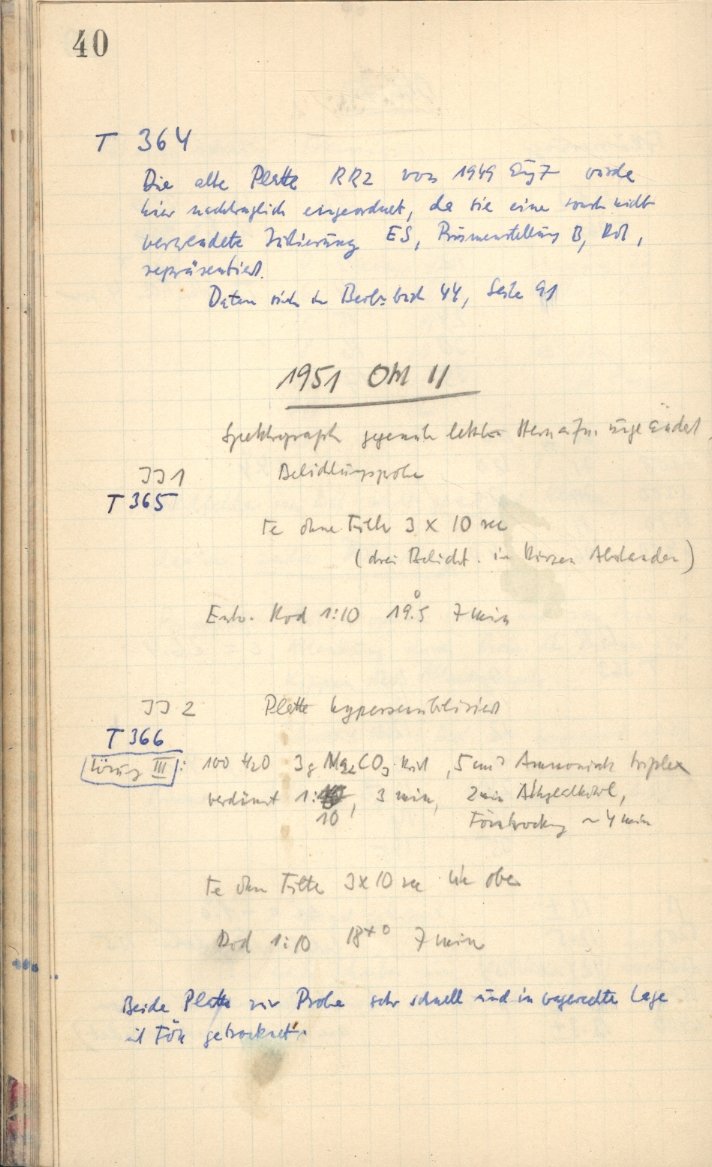 40
T 364
Die alte Platte RR2 von 1949 wurde
hier nachträglich eingeordnet, da sie eine sonst nicht
verwendete Justierung ES, Prismenstellung B, Rot,
repräsentiert.
Daten sich in Beob. buch 44, Seite 91
1951 OH II
Spektrograph gegenüber letzten ungeändert.
JJ 1 Belichtungsprobe
T 365
Fe ohne Filter 3 x 10 sec
(drei Belicht. in kurzen Abständen)
Entw. Rod 1:10 19.°5 7 min
JJ 2 Platte hypersensibilisiert
T 366
Lösung III: 100 H2O 3g Na2CO3 , 5 cm3 Ammoniak triplex
verdünnt 1:10, 3 min, 2 min Äthylalkohol,
Föntrockng ~ 4 min
Fe ohne Filter 3x10 sec wie oben
Rod 1:10 18+° 7 min
Beide Platten zur Probe sehr schnell und in wagerechter Lage
mit Fön getrocknet.